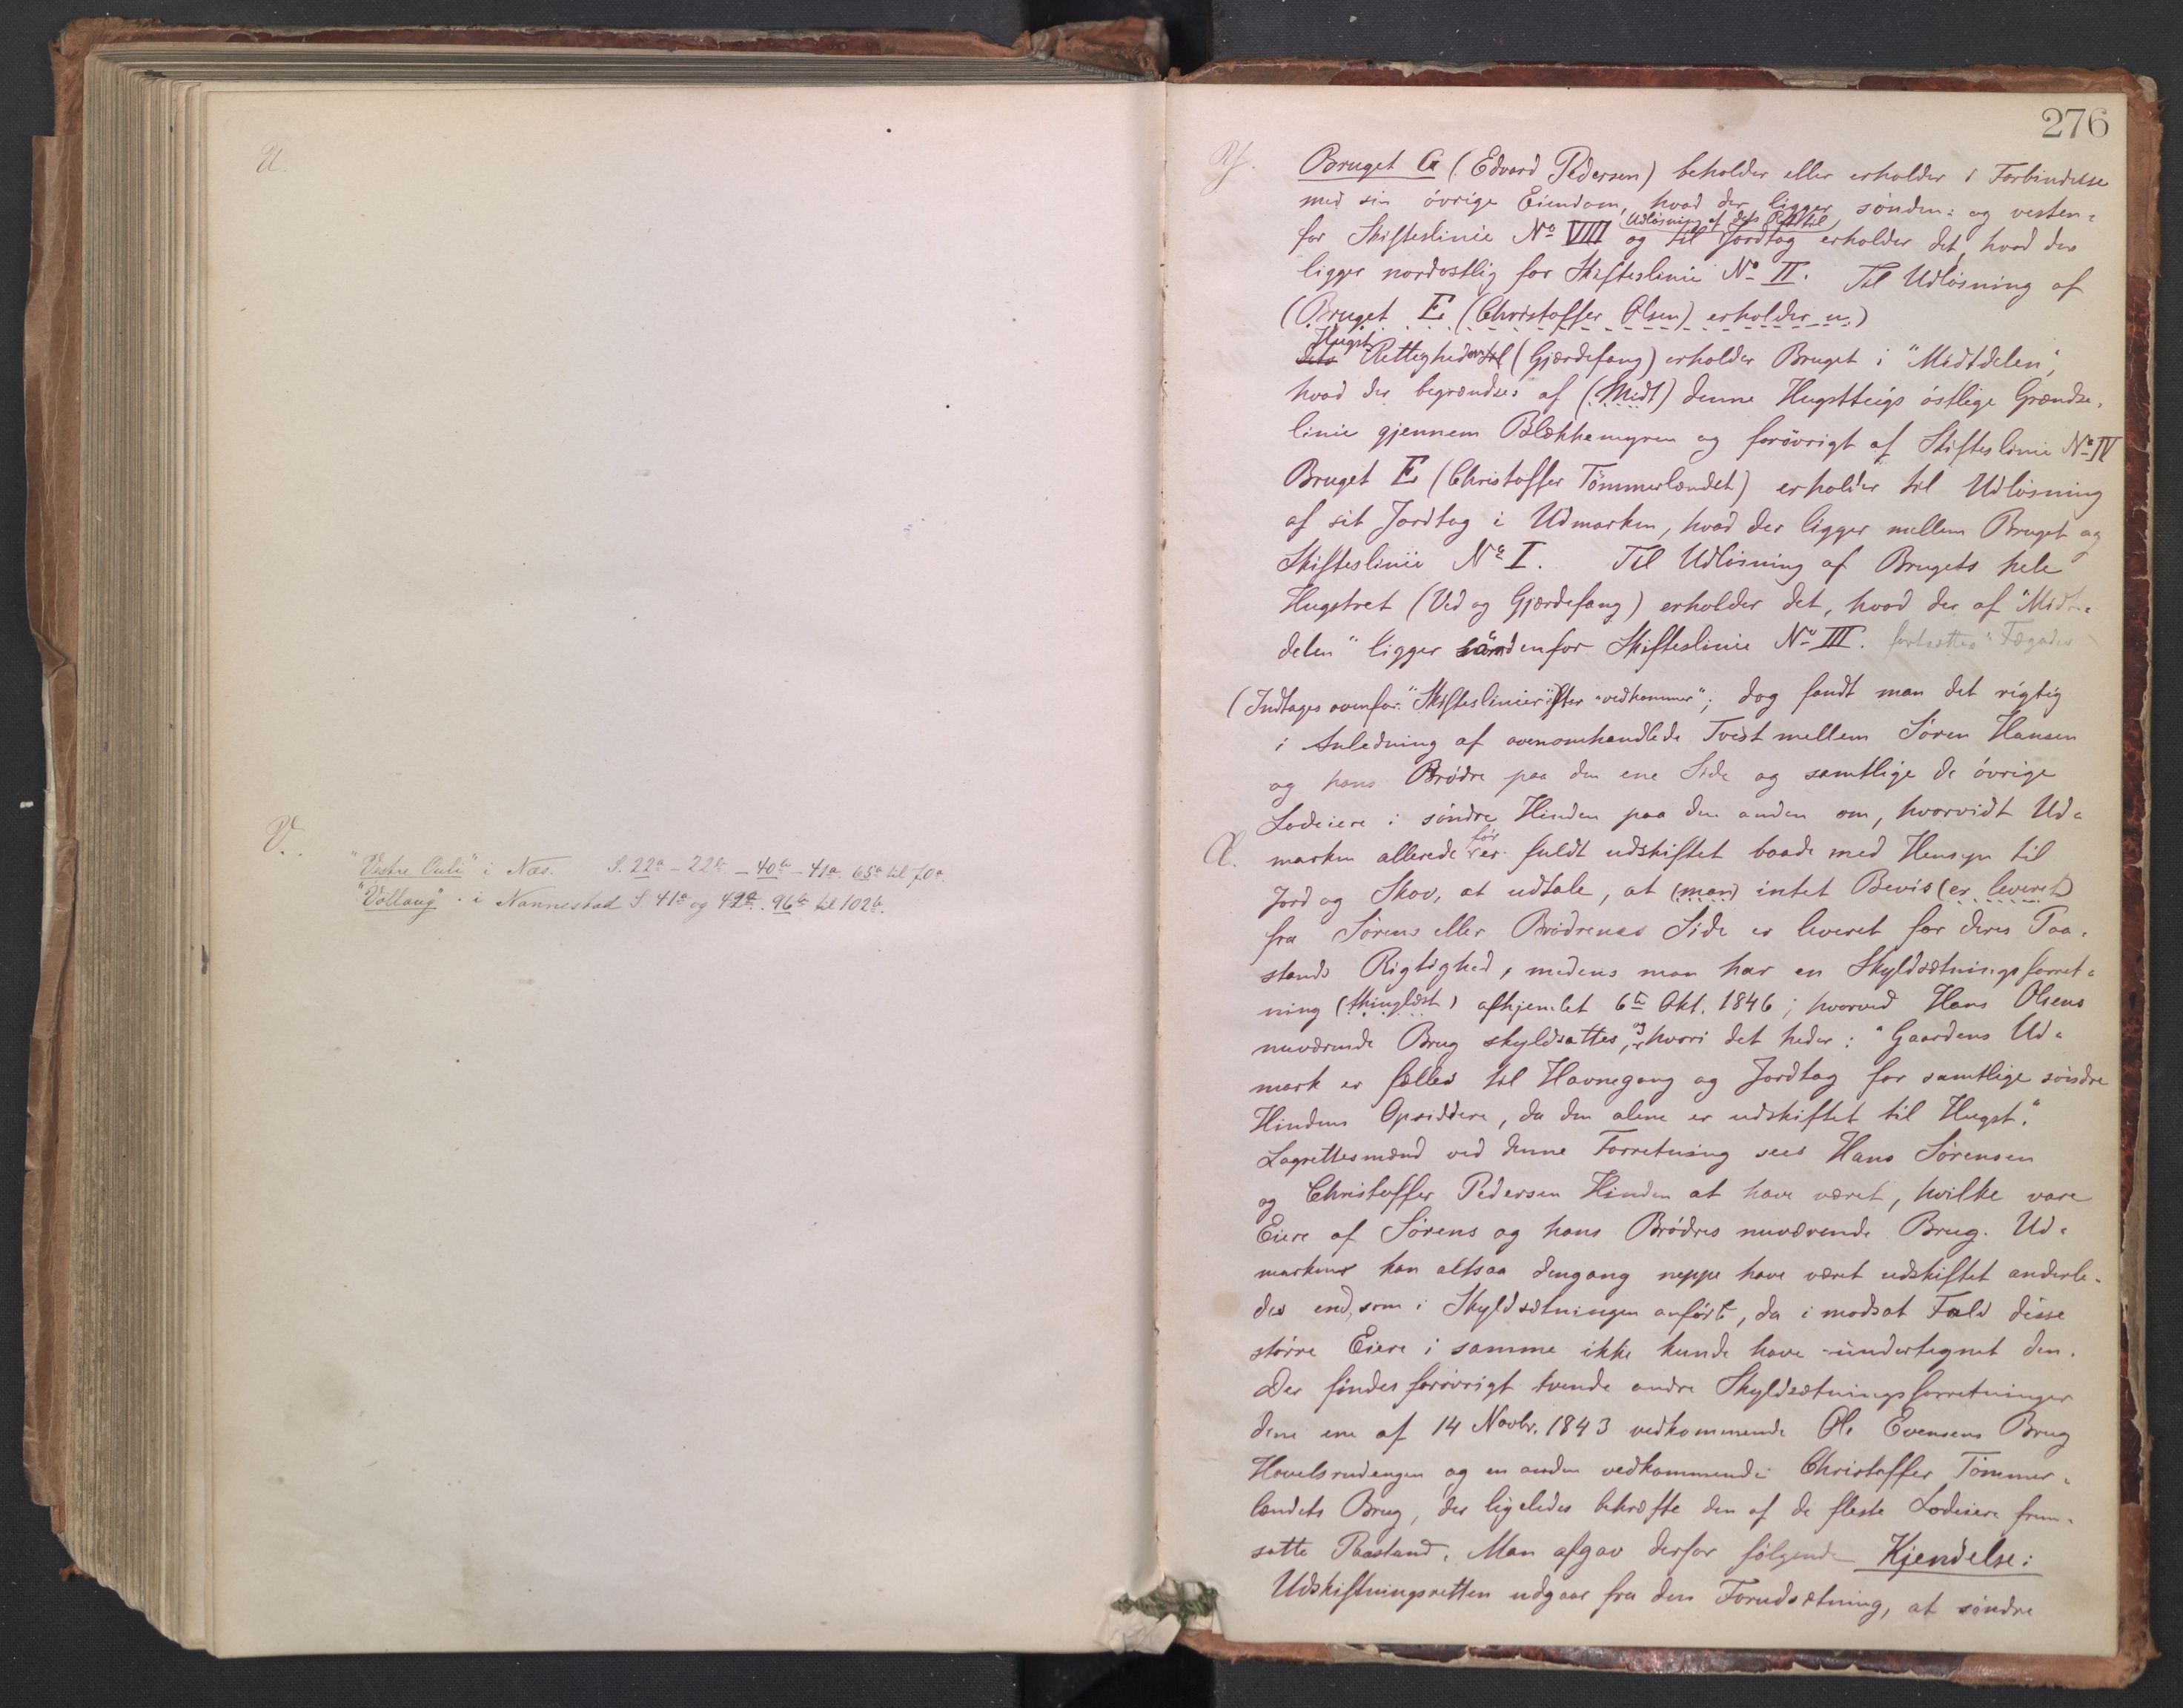 U.
V.
"Vestre Ouli" i Næs. S. 22a – 22b – 40b – 41a. 65a til 70a.
"Vollaug" i Nannestad S. 41a og 42a. 96b til 102b.
276
Y.
Bruget G (Edvard Pedersen) beholder eller erholder i Forbindelse
med sin övrige Eiendom, hvad der ligger sönden- og vesten-
Udlösning af dets Ret til
for Skifteslinie No VIII og til Jordtag erholder det, hvad der
ligger nordostlig for Skifteslinie No II. Til Udlösning af
(Bruget E (Christoffer Olsen) erholder u)
Hugst
dets Rettigheder til (Gjærdefang) erholder Bruget i "Midtdelen",
hvad der begrændses af (Midt) denne Hugstteigs östlige Grændse-
linie gjennem Blækkemyren og forövrigt af Skifteslinie No IV
Bruget E (Christoffer Tömmerlandet) erholder til Udlösning
af sit Jordtag i Udmarken, hvad der ligger mellem Bruget og
Skifteslinie No I. Til Udlösning af Brugets hele
Hugstret (Ved og Gjærdefang) erholder det, hvad der af "Midt-
delen" ligger söndenfor Skifteslinie No III. fortsættes "Fægader
(Indtages ovenfor "Skifteslinier" efter "vedkommer"; dog fandt man det rigtig
i Anledning af ovenomhandlede Tvist mellem Sören Hansen
og hans Brödre paa den ene Side og samtlige de övrige
Lodeiere i söndre Hinden paa den anden om, hvorvidt Ud-
X.
för
marken allerede er fuldt udskiftet baade med Hensyn til
Jord og Skov, at udtale, at (man) intet Bevis (er leveret)
fra Sörens eller Brödrenes Side er leveret for deres Paa-
stands Rigtighed, medens man har en Skyldsætningsforret-
ning (thinglæst) afhjemlet 6te Okt. 1846; hvorved Hans Olsens
nuværende Brug skyldsattes, og hvori det heder: "Gaardens Ud-
mark er fælles til Havnegang og Jordtag for samtlige söndre
Hindens Opsiddere, da den alene er udskiftet til Hugst."
Lagrettesmænd ved denne Forretning sees Hans Sörensen
og Christoffer Pedersen Hinden at have været, hvilke vare
Eiere af Sörens og hans Brödres nuværende Brug. Ud-
marken kan altsaa dengang neppe have været udskiftet anderle-
des end, som i Skyldsætningen anfört, da i modsat Fald disse
större Eiere i samme ikke kunde have undertegnet den.
Der findes forövrigt tvende andre Skyldsætningsforretninger
den ene af 14 Novbr. 1843 vedkommende Ole Evensens Brug
Hovelsrudengen og en anden vedkommende Christoffer Tömmer-
landets Brug, der ligeledes bekræfte den af de fleste Lodeiere frem-
satte Paastand. Man afgav derfor fölgende Kjendelse:
Udskiftningsretten udgaar fra den Forudsætning, at söndre